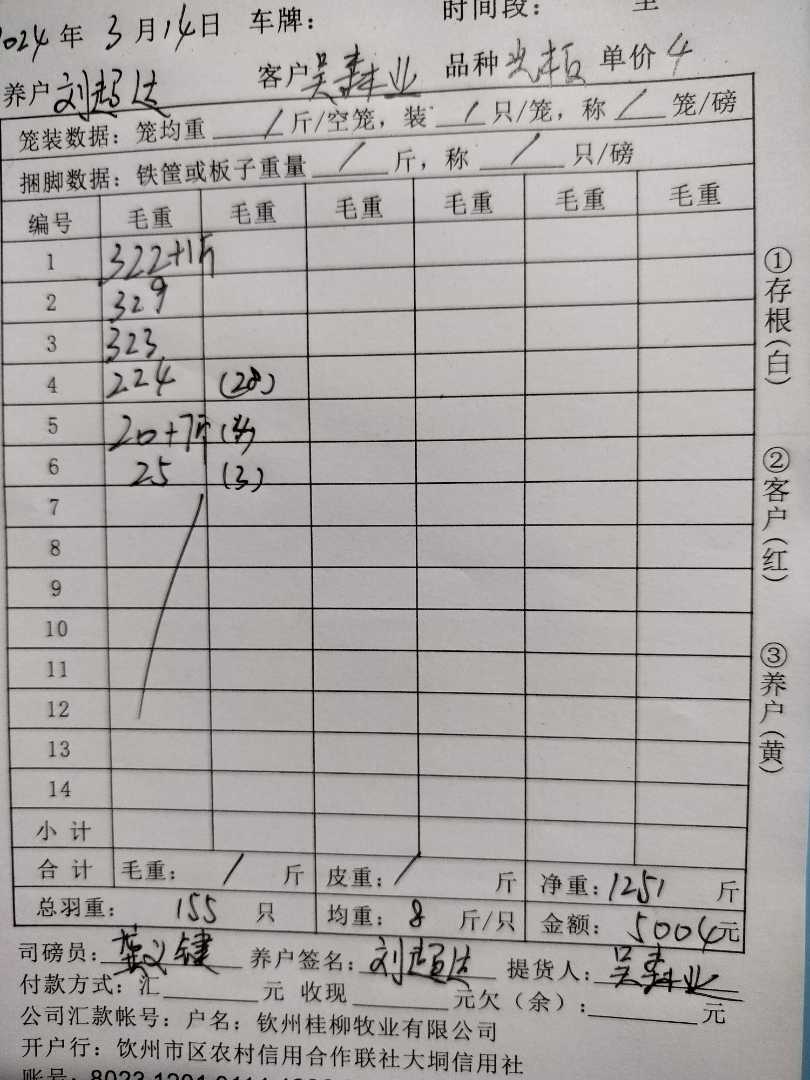 2024年 3月14日 车牌： 时间段： 至
养户 刘超达 客户 吴森业 品种 单价 4
笼装数据：笼均重 / 斤/空笼，装 / 只/笼，称 / 笼/磅
捆脚数据：铁筐或板子重量 / 斤，称 / 只/磅
编号 毛重 毛重 毛重 毛重 毛重 毛重
1 322+1斤
2 329
3 323
4 224 (28)
5 20+7斤 (4)
6 25 (3)
7
8
9
10
11
12
13
14
小计
合计 毛重： / 斤 皮重： / 斤 净重：1251 斤
总羽重： 155 只 均重： 8 斤/只 金额： 5004元
司磅员： 键 养户签名：刘超达 提货人：吴森业
付款方式：汇 元 收现 元欠（余）： 元
公司汇款帐号：户名：钦州桂柳牧业有限公司
开户行：钦州市区农村信用合作联社大垌信用社
账号：
①存根(白)
②客户(红)
③养户(黄)